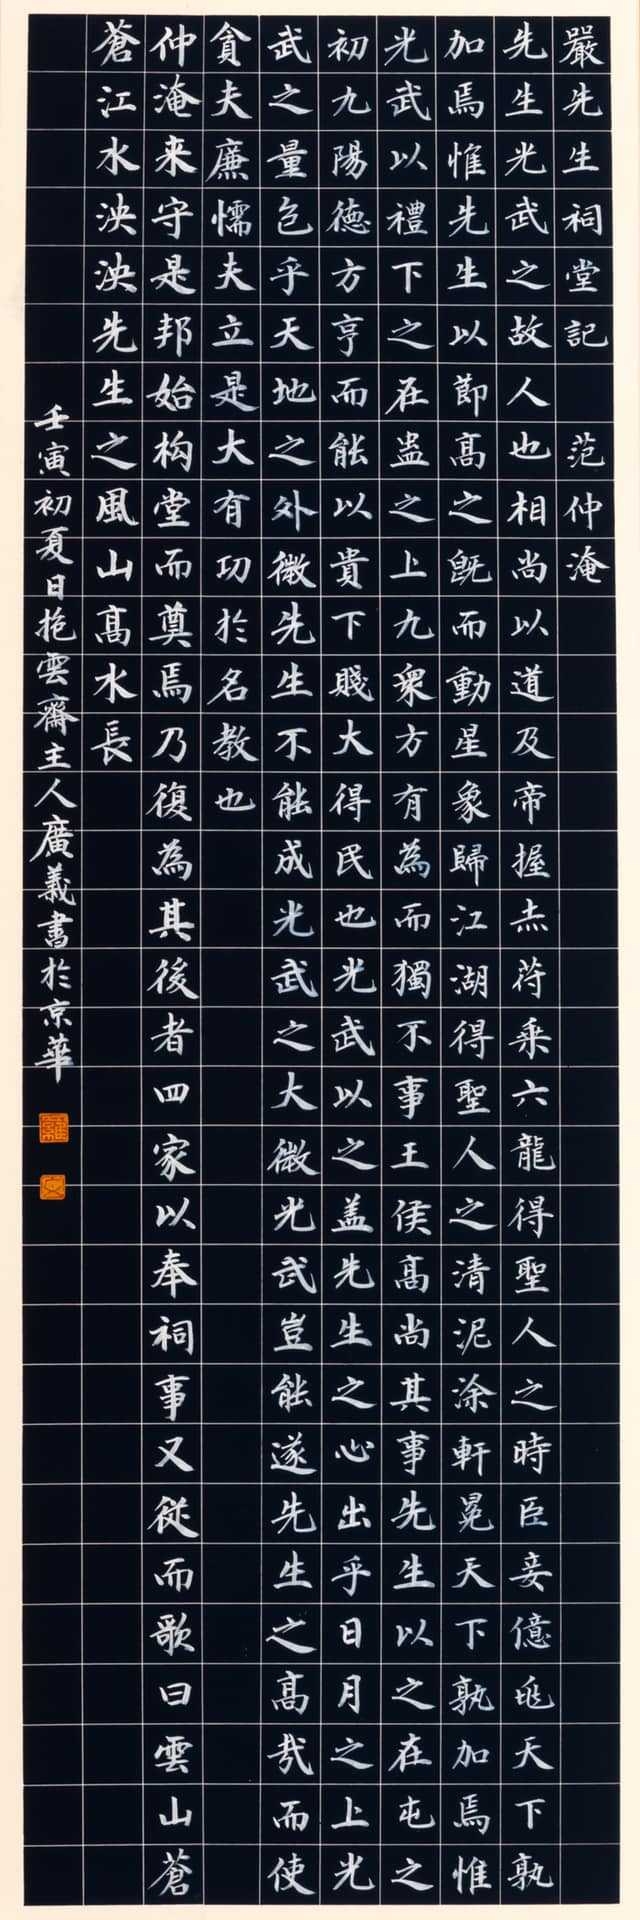 嚴先生祠堂記 范仲淹
先生光武之故人也相尚以道及帝握赤苻乘六龍得聖人之時臣妾億兆天下孰
加焉惟先生以節高之既而動星象歸江湖得聖人之清泥涂軒冕天下孰加焉惟
光武以禮下之在蛊之上九衆方有為而獨不事王侯高尚其事先生以之在屯之
初九陽德方亨而能以貴下賤大得民也光武以之盖先生之心出乎日月之上光
武之量包乎天地之外微先生不能成光武之大微光武豈能遂先生之高哉而使
貪夫廉懦夫立是大有功於名教也
仲淹来守是邦始构堂而奠焉乃復為其後者四家以奉祠事又従而歌曰雲山蒼
蒼江水泱泱先生之風山高水長
壬寅初夏日抱雲齋主人廣義書於京華